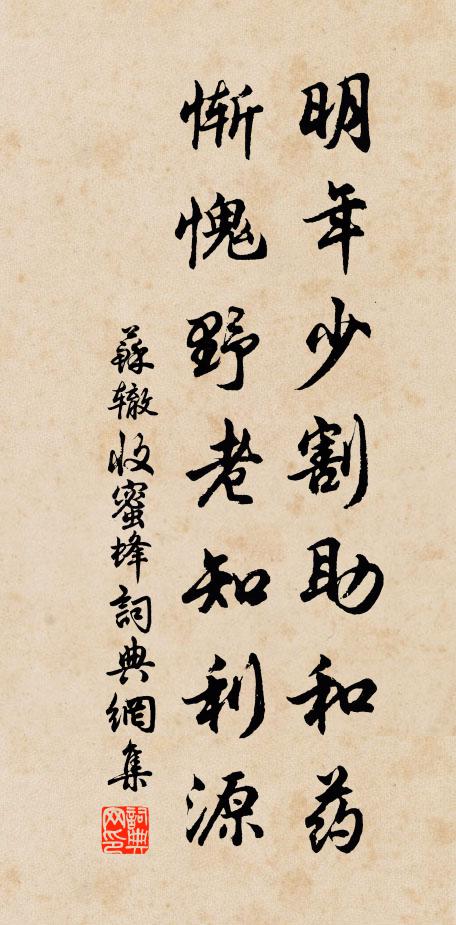 明年少割助和药
惭愧野老知利源
蘇辙收蜜蜂詞典網集
詞典网印